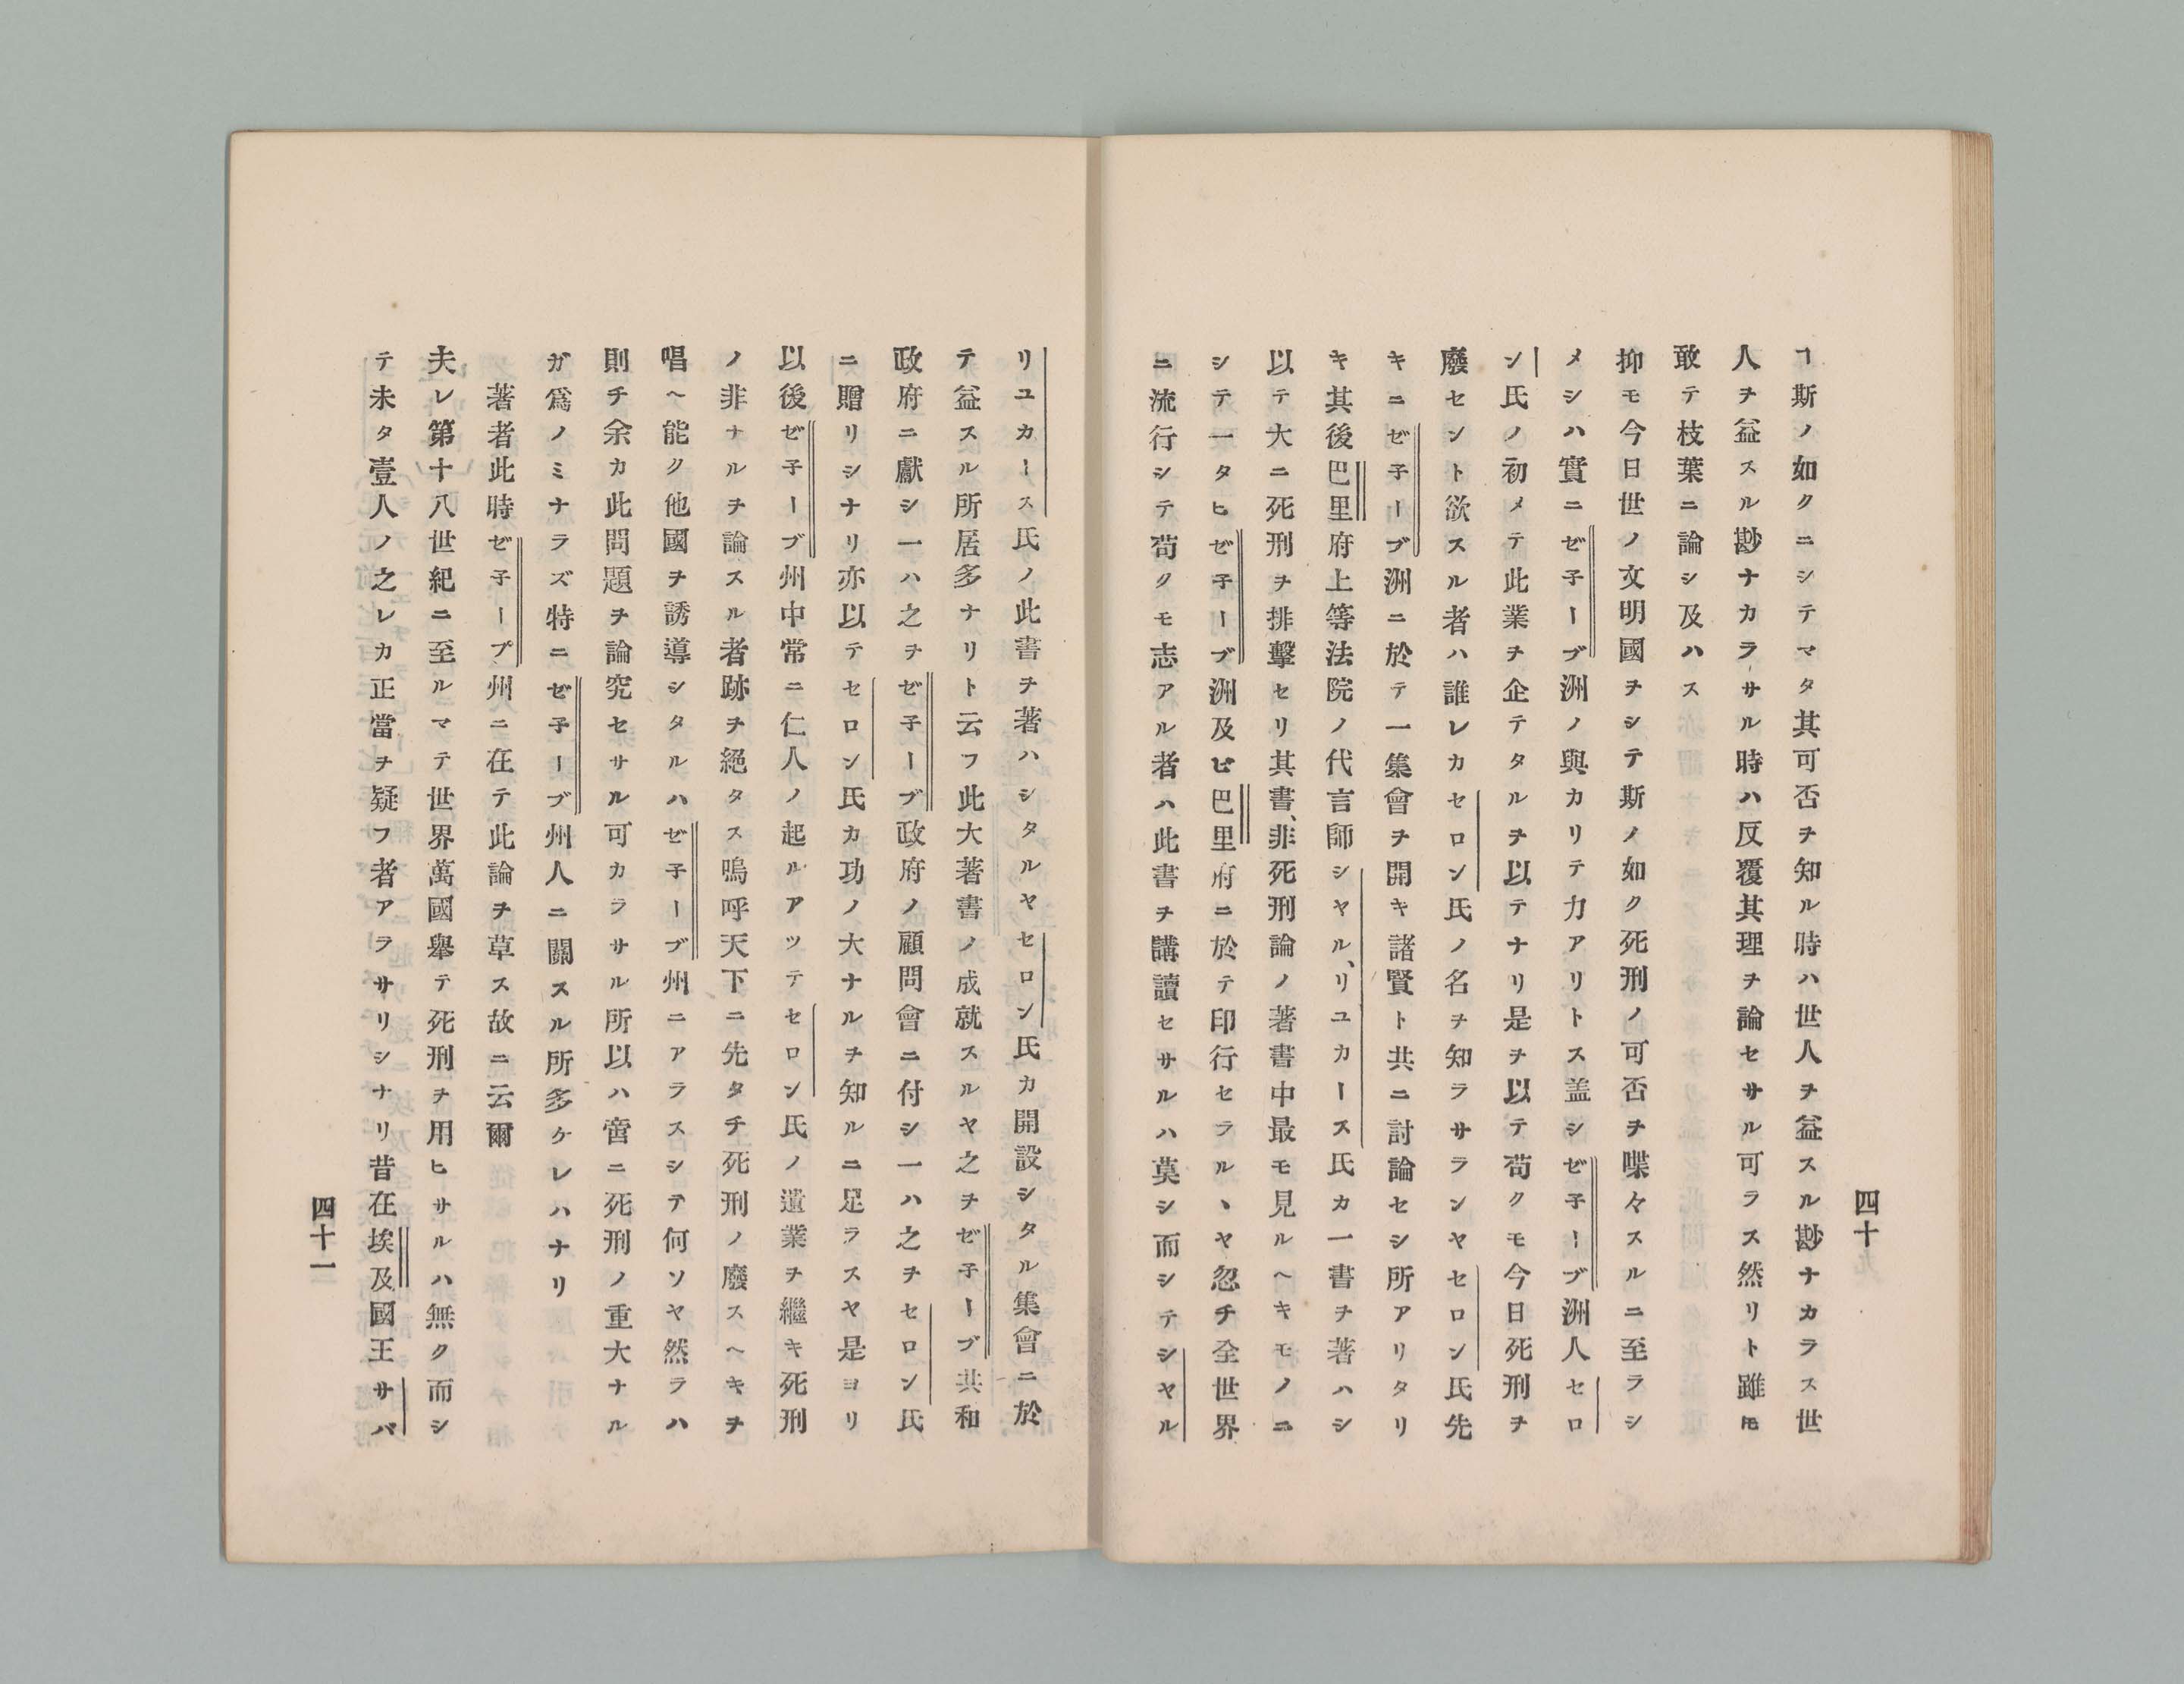 四十
ヿ斯ノ如クニシテマタ其可否ヲ知ル時ハ世人ヲ益スル尠ナカラス世
人ヲ益スル尠ナカラサル時ハ反覆其理ヲ論セサル可ラス然リト雖𪜈
敢テ枝葉ニ論シ及ハス
抑モ今日世ノ文明國ヲシテ斯ノ如ク死刑ノ可否ヲ喋々スルニ至ラシ
メシハ實ニゼ子ーブ洲ノ與カリテ力アリトス盖シゼ子ーブ洲人セロ
ン氏ノ初メテ此業ヲ企テタルヲ以テナリ是ヲ以テ苟クモ今日死刑ヲ
廢セント欲スル者ハ誰レカセロン氏ノ名ヲ知ラサランヤセロン氏先
キニゼ子ーブ洲ニ於テ一集會ヲ開キ諸賢ト共ニ討論セシ所アリタリ
キ其後巴里府上等法院ノ代言師シヤル、リユカース氏カ一書ヲ著ハシ
以テ大ニ死刑ヲ排擊セリ其書、非死刑論ノ著書中最モ見ルヘキモノニ
シテ一タヒゼ子ーブ洲及ヒ巴里府ニ於テ印行セラルヽヤ忽チ全世界
ニ流行シテ苟クモ志アル者ハ此書ヲ講讀セサルハ莫シ而シテシヤル
リユカース氏ノ此書ヲ著ハシタルヤセロン氏カ開設シタル集會ニ於
テ益スル所居多ナリト云フ此大著書ノ成就スルヤ之ヲゼ子ーブ共和
政府ニ獻シ一ハ之ヲゼ子ーブ政府ノ顧問會ニ付シ一ハ之ヲセロン氏
ニ贈リシナリ亦以テセロン氏カ功ノ大ナルヲ知ルニ足ラスヤ是ヨリ
以後ゼ子ーブ州中常ニ仁人ノ起ルアツテセロン氏ノ遺業ヲ繼キ死刑
ノ非ナルヲ論スル者跡ヲ絕タス嗚呼天下ニ先タチ死刑ノ廢スヘキヲ
唱ヘ能ク他國ヲ誘導シタルハゼ子ーブ州ニアラスシテ何ソヤ然ラハ
則チ余カ此問題ヲ論究セサル可カラサル所以ハ啻ニ死刑ノ重大ナル
ガ爲ノミナラズ特ニゼ子ーブ州人ニ關スル所多ケレハナリ
著者此時ゼ子ーブ州ニ在テ此論ヲ草ス故ニ云爾
夫レ第十八世紀ニ至ルマテ世界萬國舉テ死刑ヲ用ヒサルハ無ク而シ
テ未タ壹人ノ之レカ正當ヲ疑フ者アラサリシナリ昔在埃及國王サバ
四十一